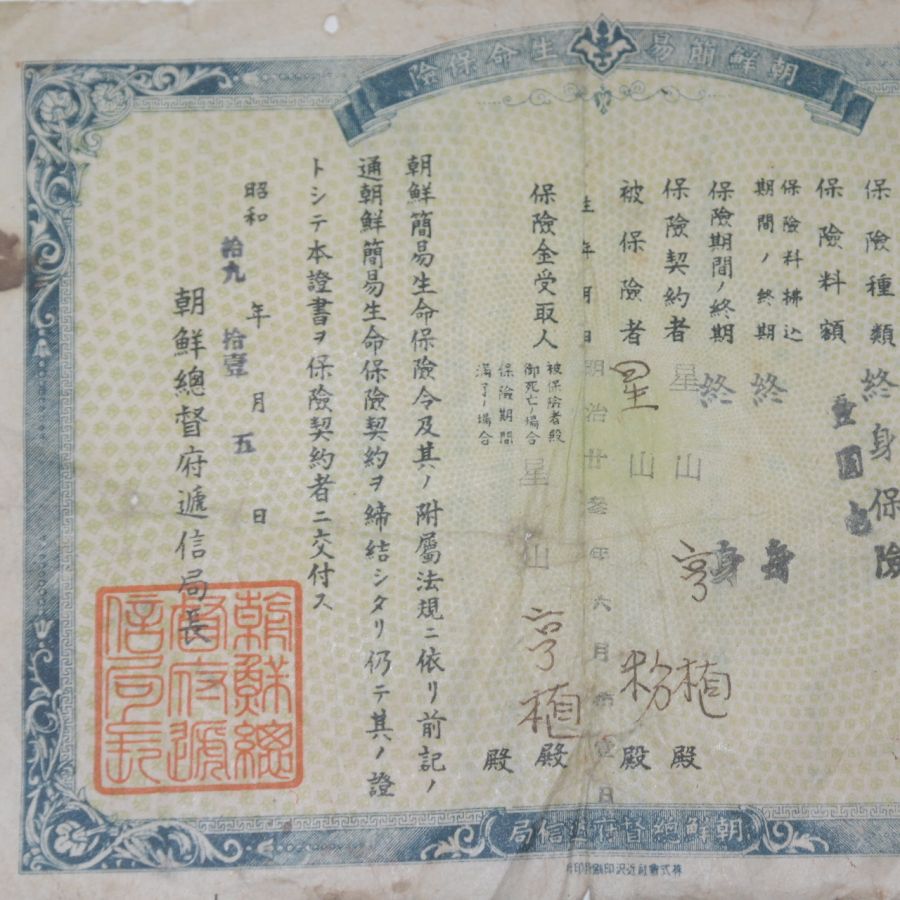 朝鮮簡易生命保險
保險種類 終身保險
保險料額 壹圓
保險料拂込期間ノ終期 終身
保險期間ノ終期 終身
保險契約者 星山亨植殿
被保險者 星山粉殿
生年月日 明治廿參年六月拾壹日
保險金受取人
被保險者殿御死亡ノ場合 星山亨植殿
保險期間滿了ノ場合 殿
朝鮮簡易生命保險令及其ノ附屬法規ニ依リ前記ノ
通朝鮮簡易生命保險契約ヲ締結シタリ仍テ其ノ證
トシテ本證書ヲ保險契約者ニ交付ス
昭和拾九年拾壹月五日
朝鮮總督府遞信局長
朝鮮總督府遞信局長
朝鮮總督府遞信局